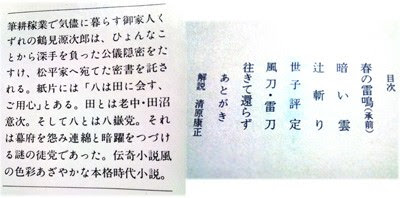 筆耕稼業で気儘に暮らす御家人く
ずれの鶴見源次郎は、ひょんなこ
とから深手を負った公儀隠密をた
すけ、松平家へ宛てた密書を託さ
れる。紙片には「八は田に会す、
ご用心」とある。田とは老中・田沼
意次。そして八とは八嶽党。それ
は幕府を怨み連綿と暗躍をつづけ
る謎の徒党であった。伝奇小説風
の色彩あざやかな本格時代小説。
目次
春の雷鳴(承前)
暗い雲
辻斬り
世子評定
風刀・雷刀
往きて還らず
あとがき
解説 清原康正